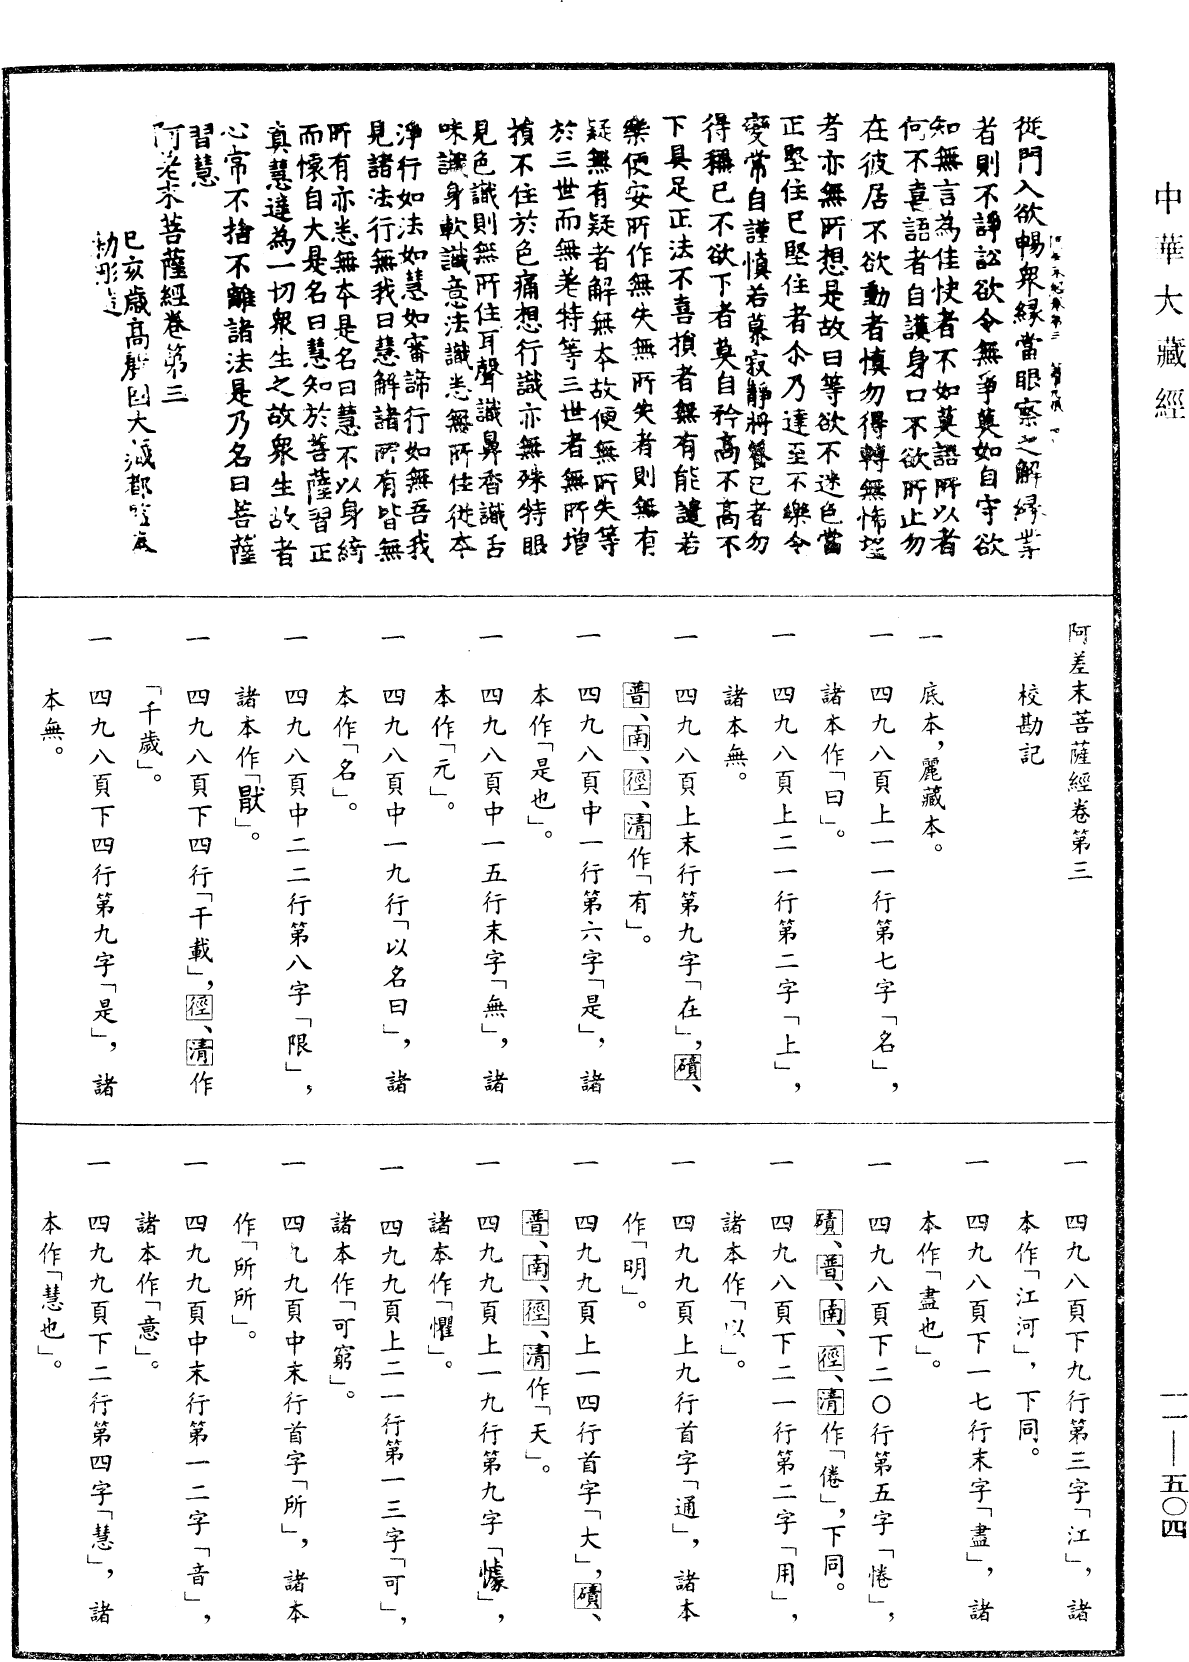 中華大藏經
從門入欲暢眾緣當眼察之解緣等
者則不諍訟欲令無爭莫如自守欲
知無言為佳快者不如莫語所以者
何不喜語者自護身口不欲所止勿
在彼居不欲動者慎勿得轉無怖望
者亦無所想是故曰等欲不迷色當
正堅住已堅住者尒乃達至不樂令
變常自謹慎若慕寂靜將養已者勿
得稱已不欲下者莫自矜高不高不
下具足正法不喜損者無有能譴若
樂便安所作無失無所失者則無有
疑無有疑者解無本故便無所失等
於三世而無差特等三世者無所增
損不住於色痛想行識亦無殊特眼
見色識則無所住耳聲識鼻香識舌
味識身軟識意法識悉無所住從本
淨行如法如慧如審諦行如無吾我
見諸法行無我曰慧解諸所有皆無
所有亦悉無本是名曰慧不以身綺
而懷自大是名曰慧知於菩薩習正
真慧達為一切眾生之故眾生故者
心常不捨不離諸法是乃名曰菩薩
習慧
阿差末菩薩經卷第三
己亥歲高麗國大藏都監奉
勑彫造
阿差末菩薩經卷第三
校勘記
一 底本，麗藏本。
一 四九八頁上一一行第七字「名」，
諸本作「曰」。
一 四九八頁上二一行第二字「上」，
諸本無。
一 四九八頁上末行第九字「在」，磧、
普、南、徑、清作「有」。
一 四九八頁中一行第六字「是」，諸
本作「是也」。
一 四九八頁中一五行末字「無」，諸
本作「元」。
一 四九八頁中一九行「以名曰」，諸
本作「名」。
一 四九八頁中二二行第八字「限」，
諸本作「猒」。
一 四九八頁下四行「干載」，徑、清作
「千歲」。
一 四九八頁下四行第九字「是」，諸
本無。
一 四九八頁下九行第三字「江」，諸
本作「江河」，下同。
一 四九八頁下一七行末字「盡」，諸
本作「盡也」。
一 四九八頁下二〇行第五字「惓」，
磧、普、南、徑、清作「倦」，下同。
一 四九八頁下二一行第二字「用」，
諸本作「以」。
一 四九九頁上九行首字「通」，諸本
作「明」。
一 四九九頁上一四行首字「大」，磧、
普、南、徑、清作「天」。
一 四九九頁上一九行第九字「懅」，
諸本作「懼」。
一 四九九頁上二一行第一三字「可」，
諸本作「可窮」。
一 四九九頁中末行首字「所」，諸本
作「所所」。
一 四九九頁中末行第一二字「音」，
諸本作「意」。
一 四九九頁下二行第四字「慧」，諸
本作「慧也」。
一一—五〇四